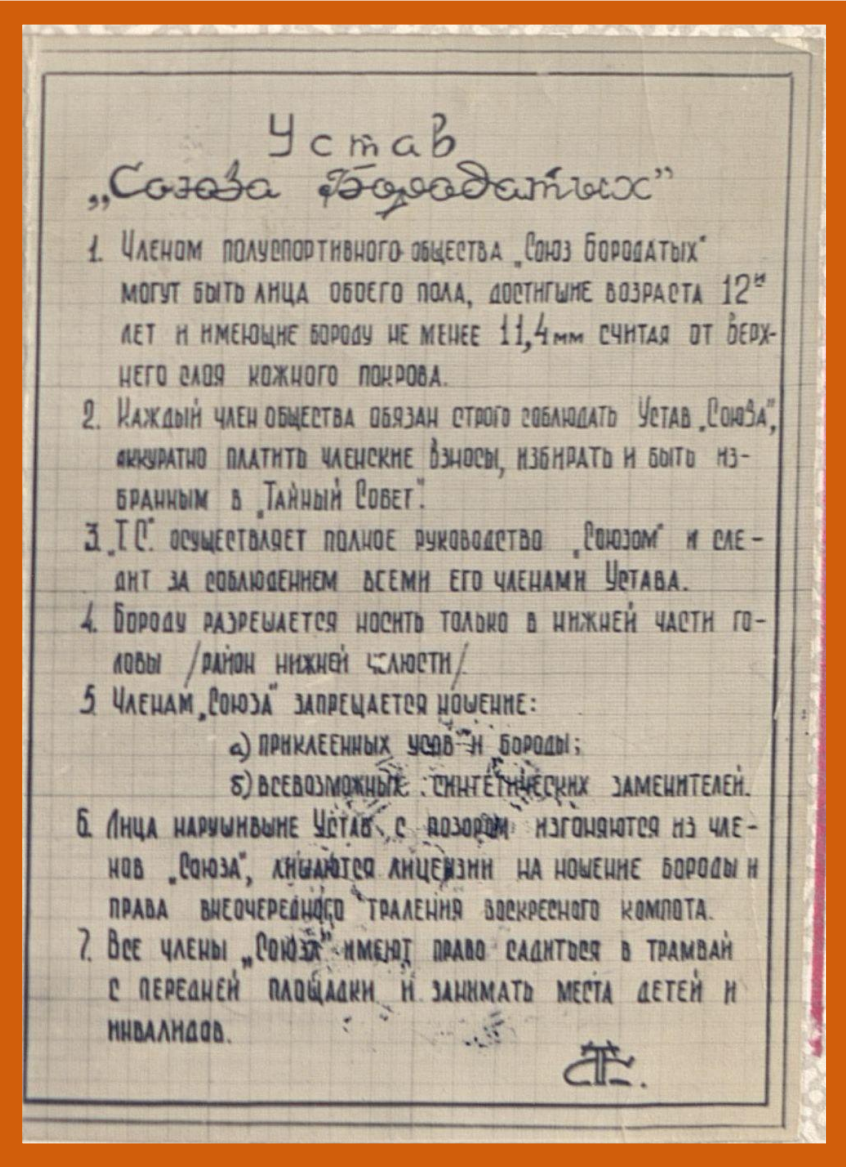 Устав
„Союза Бородатых”
1. Членом полуспортивного общества „Союз бородатых"
могут быть лица обоего пола, достигшие возраста 12и
лет и имеющие бороду не менее 11,4мм считая от верх-
него слоя кожного покрова.
2. Каждый член общества обязан строго соблюдать Устав „Союза",
аккуратно платить членские взносы, избирать и быть из-
бранным в „Тайный Совет".
3. „Т.С." осуществляет полное руководство „Союзом" и сле-
дит за соблюдением всеми его членами Устава.
4. Бороду разрешается носить только в нижней части го-
ловы /район нижней челюсти/
5. Членам „Союза" запрещается ношение:
а) приклеенных усов и бороды;
б) всевозможных синтетических заменителей.
6. Лица нарушившие Устав с позором изгоняются из чле-
нов „Союза", лишаются лицензии на ношение бороды и
права внеочередного траления воскресного компота.
7. Все члены „Союза" имеют право садиться в трамвай
с передней площадки и занимать места детей и
инвалидов.
ТС.